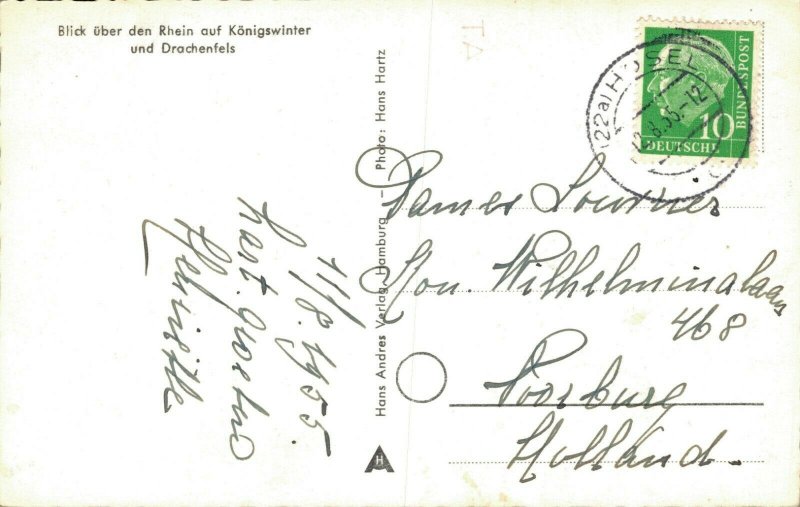 Blick über den Rhein auf Königswinter
und Drachenfels
11/8.1955.
hart. groeten
Hans Andres Verlag, Hamburg. – Photo: Hans Hartz
H
TA
(22a) HÖSEL
.8.55.-12
10
DEUTSCHE
BUNDESPOST
Kon. Wilhelminalaan
468
Voorburg
Holland.